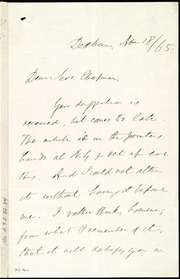 Dedham, Nov 18/65.
Dear Mrs. Chapman,
Your suggestion is
received, but comes too late.
The article is in the printers
hands at N.Y. & set up ere
this. And I could not alter
it without having it before
me. I rather think, however,
from what I remember of it,
that it will satisfy you in